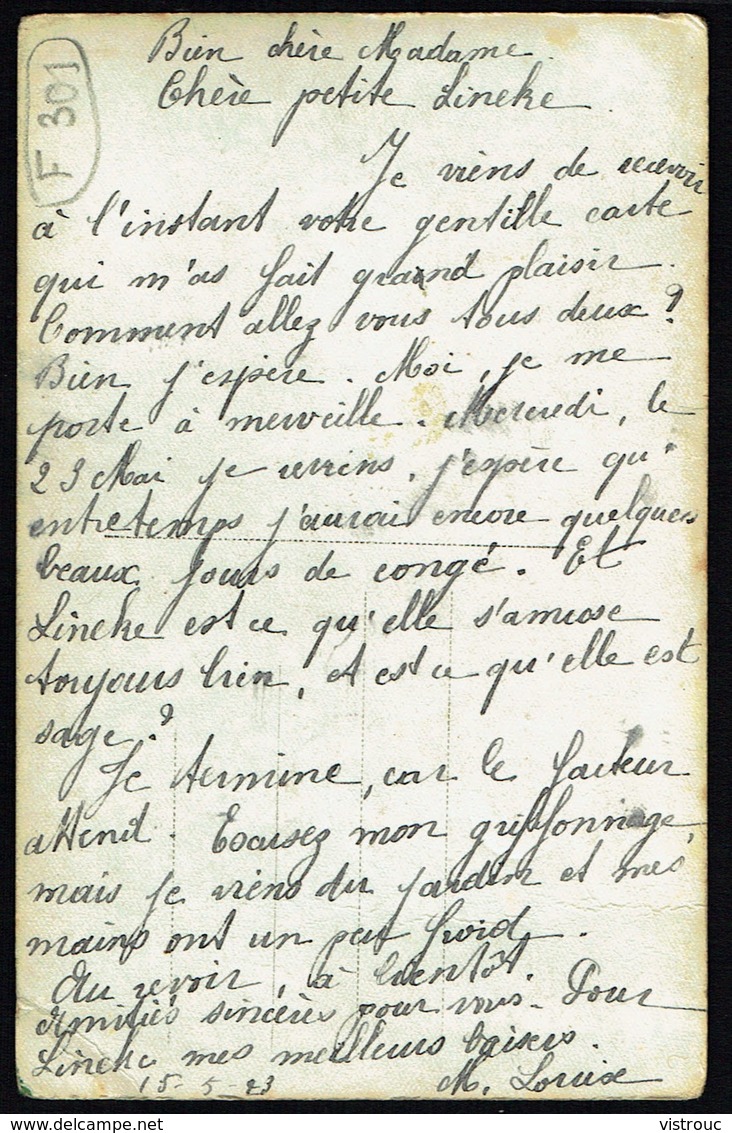 F 301
Bien chère Madame.
Chère petite Lineke.
Je viens de recevoir
à l'instant votre gentille carte
qui m'as fait grand plaisir.
Comment allez vous tous deux?
Bien j'espère. Moi, je me
porte à merveille. Mercredi, le
23 Mai je reviens, j'espère qu'
entretemps j'aurai encore quelques
beaux jours de congé. Et
Lineke est ce qu'elle s'amuse
toujours bien, et est ce qu'elle est
sage?
Je termine, car le facteur
attend. Excusez mon griffonnage,
mais je viens du jardin et mes
mains ont un peu froid.
Au revoir, à bientôt.
Amitiés sincères pour vous. Pour
Lineke mes meilleurs baisers.
15-5-23 M. Louise
vistrouc